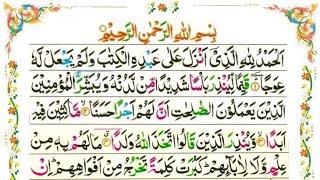 بِسْمِ اللّٰهِ الرَّحْمٰنِ الرَّحِيْمِ
اَلْحَمْدُ لِلّٰهِ الَّذِيْٓ اَنْزَلَ عَلٰى عَبْدِهِ الْكِتٰبَ وَلَمْ يَجْعَلْ لَّهٗ
عِوَجًا ۜ ① قَيِّمًا لِّيُنْذِرَ بَاْسًا شَدِيْدًا مِّنْ لَّدُنْهُ وَيُبَشِّرَ الْمُؤْمِنِيْنَ
الَّذِيْنَ يَعْمَلُوْنَ الصّٰلِحٰتِ اَنَّ لَهُمْ اَجْرًا حَسَنًا ② مَّاكِثِيْنَ فِيْهِ
اَبَدًا ③ وَّيُنْذِرَ الَّذِيْنَ قَالُوا اتَّخَذَ اللّٰهُ وَلَدًا ④ مَا لَهُمْ بِهٖ مِنْ
عِلْمٍ وَّلَا لِاٰبَآئِهِمْ كَبُرَتْ كَلِمَةً تَخْرُجُ مِنْ اَفْوَاهِهِمْ اِنْ